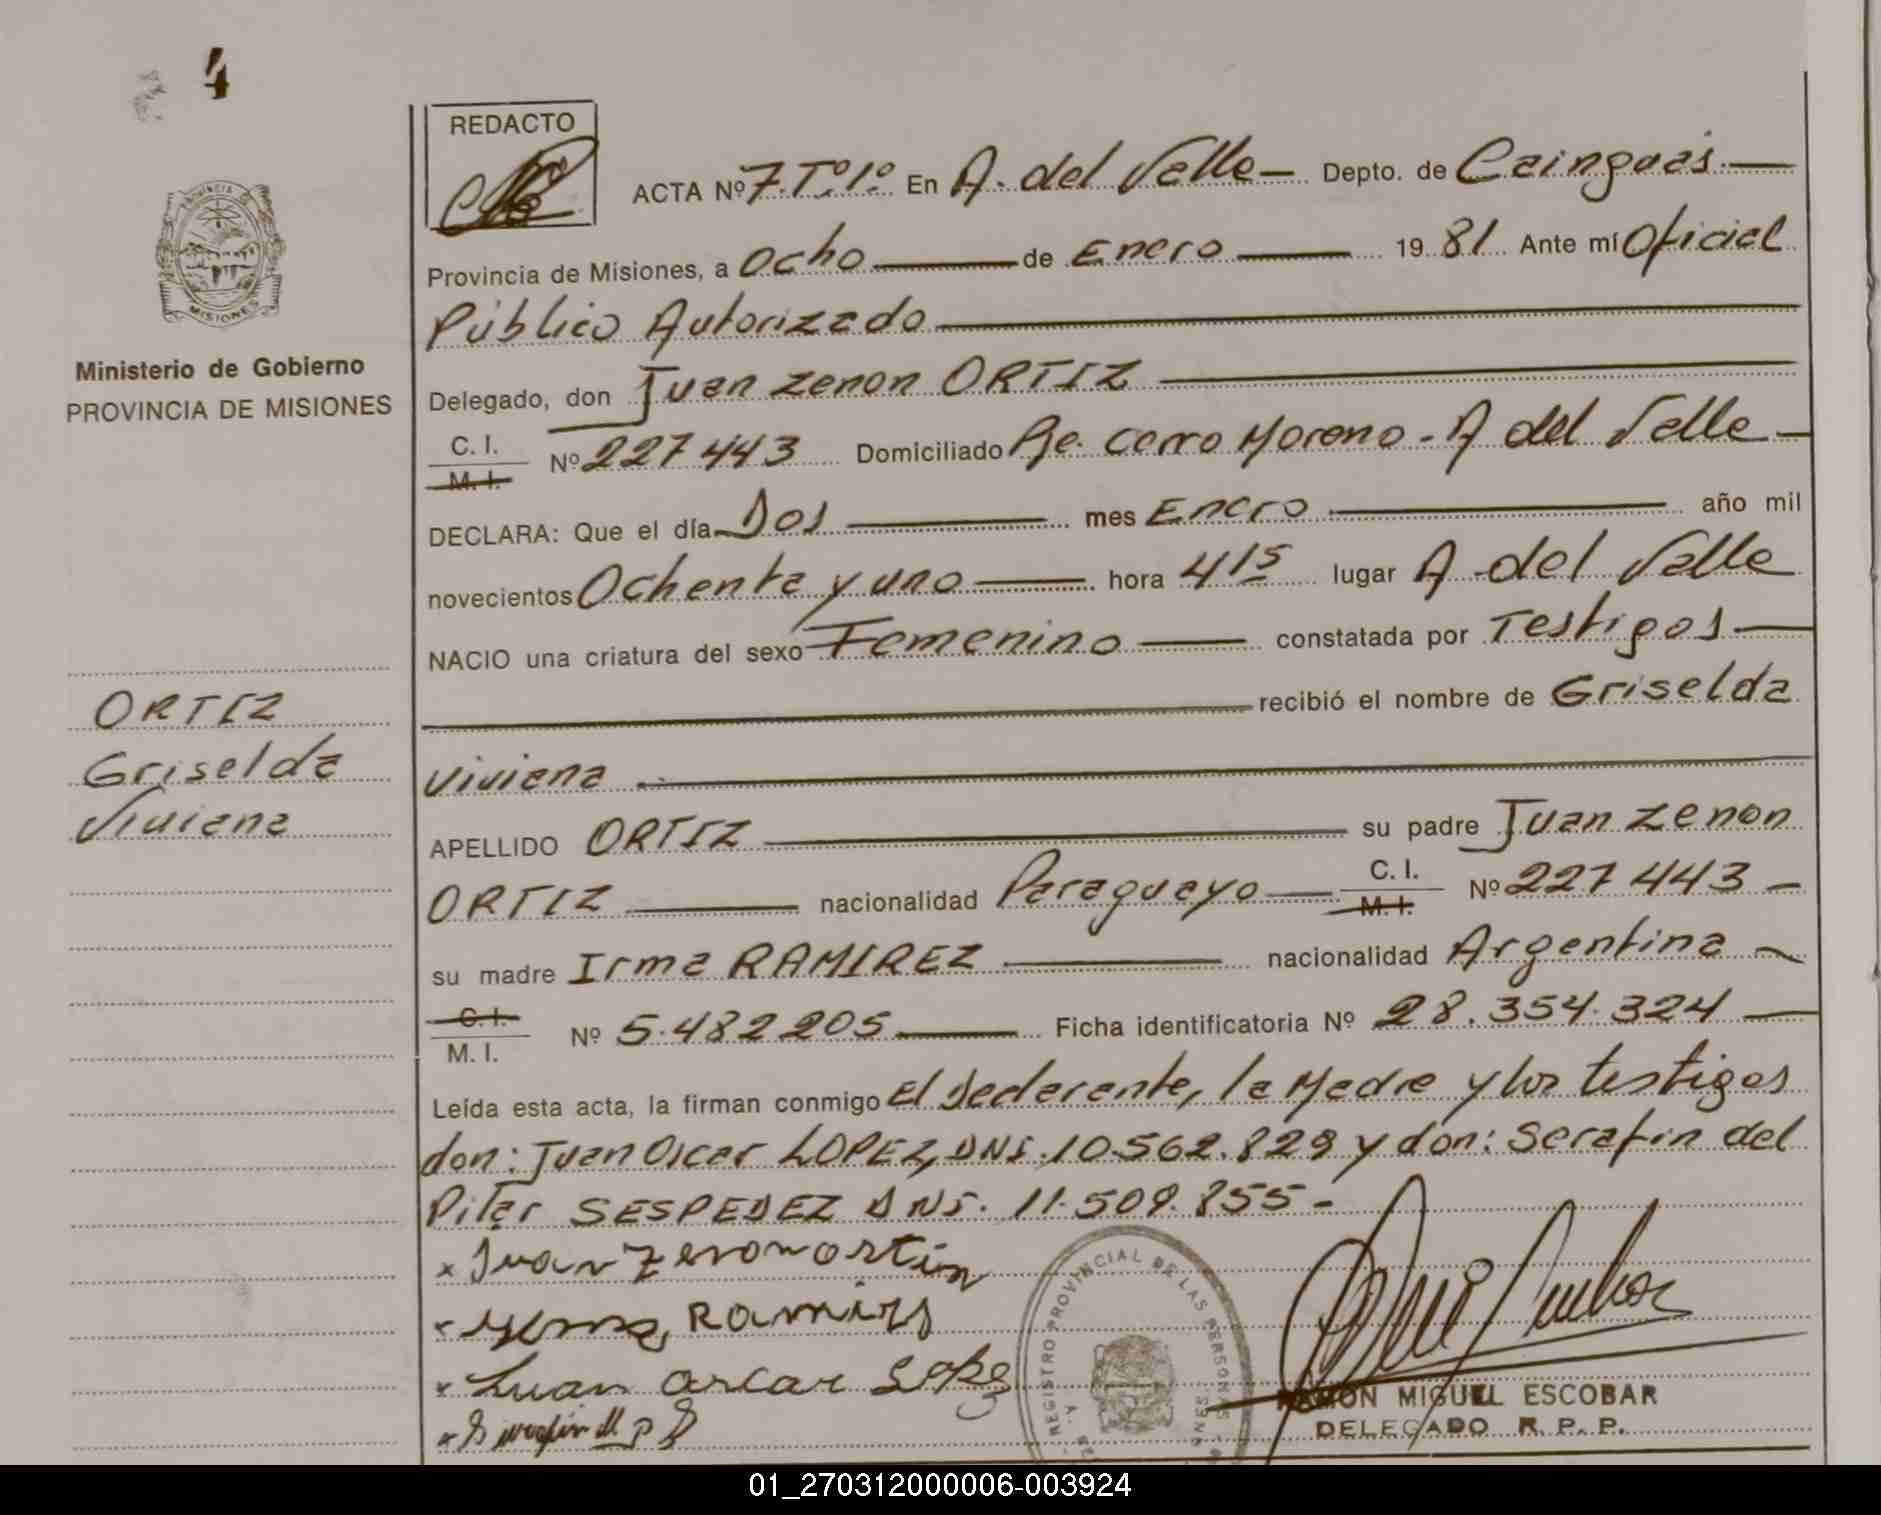 4
REDACTO
ACTA Nº 7.Tº.1º. En A. del Valle Depto. de Cainguás
Provincia de Misiones, a Ocho de Enero 19 81 Ante mí Oficial
Público Autorizado
Delegado, don Juan Zenon ORTIZ
C. I.
M. I.
Nº 227 443 Domiciliado Pje. Cerro Moreno - A del Valle
DECLARA: Que el día Dos mes Enero año mil
novecientos Ochenta y uno hora 4 15 lugar A. del Valle
NACIO una criatura del sexo Femenino constatada por Testigos
recibió el nombre de Griselda
Viviana
APELLIDO ORTIZ su padre Juan Zenon
ORTIZ nacionalidad Paraguayo C. I. M. I. Nº 227 443
su madre Irma RAMIREZ nacionalidad Argentina
C. I.
M. I.
Nº 5.482 205 Ficha identificatoria Nº 28.354.324
Leída esta acta, la firman conmigo El declarante, la Madre y los testigos
don: Juan Oscar LOPEZ, DNI. 10.562.829 y don: Serafin del
Pilar SESPEDEZ DNI. 11.509.855 -
x Juan Zenon ortiz
x Ramirs
x Juan oscar Lopez
x
RAMON MIGUEL ESCOBAR
DELEGADO R. P. P.
REGISTRO PROVINCIAL DE LAS PERSONAS
PROVINCIA D
MISIONES
Ministerio de Gobierno
PROVINCIA DE MISIONES
ORTIZ
Griselda
Viviana
01_270312000006-003924